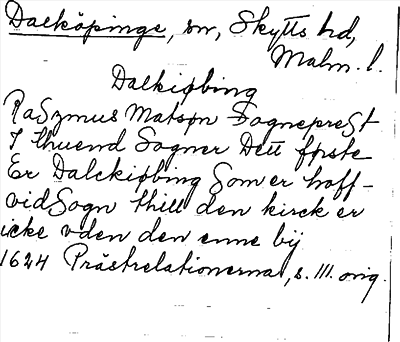 Dalköpinge, sn, Skytts hd,
Malm. l.
Dalkiøbing
Raszmus Matsøn Sogneprest
I thuend Sogner Dett første
Er Dalckiøbing Som er hoff-
vid Sogn thill den kirck er
icke vden den enne bij
1624 Prästrelationerna, s. 111. orig.